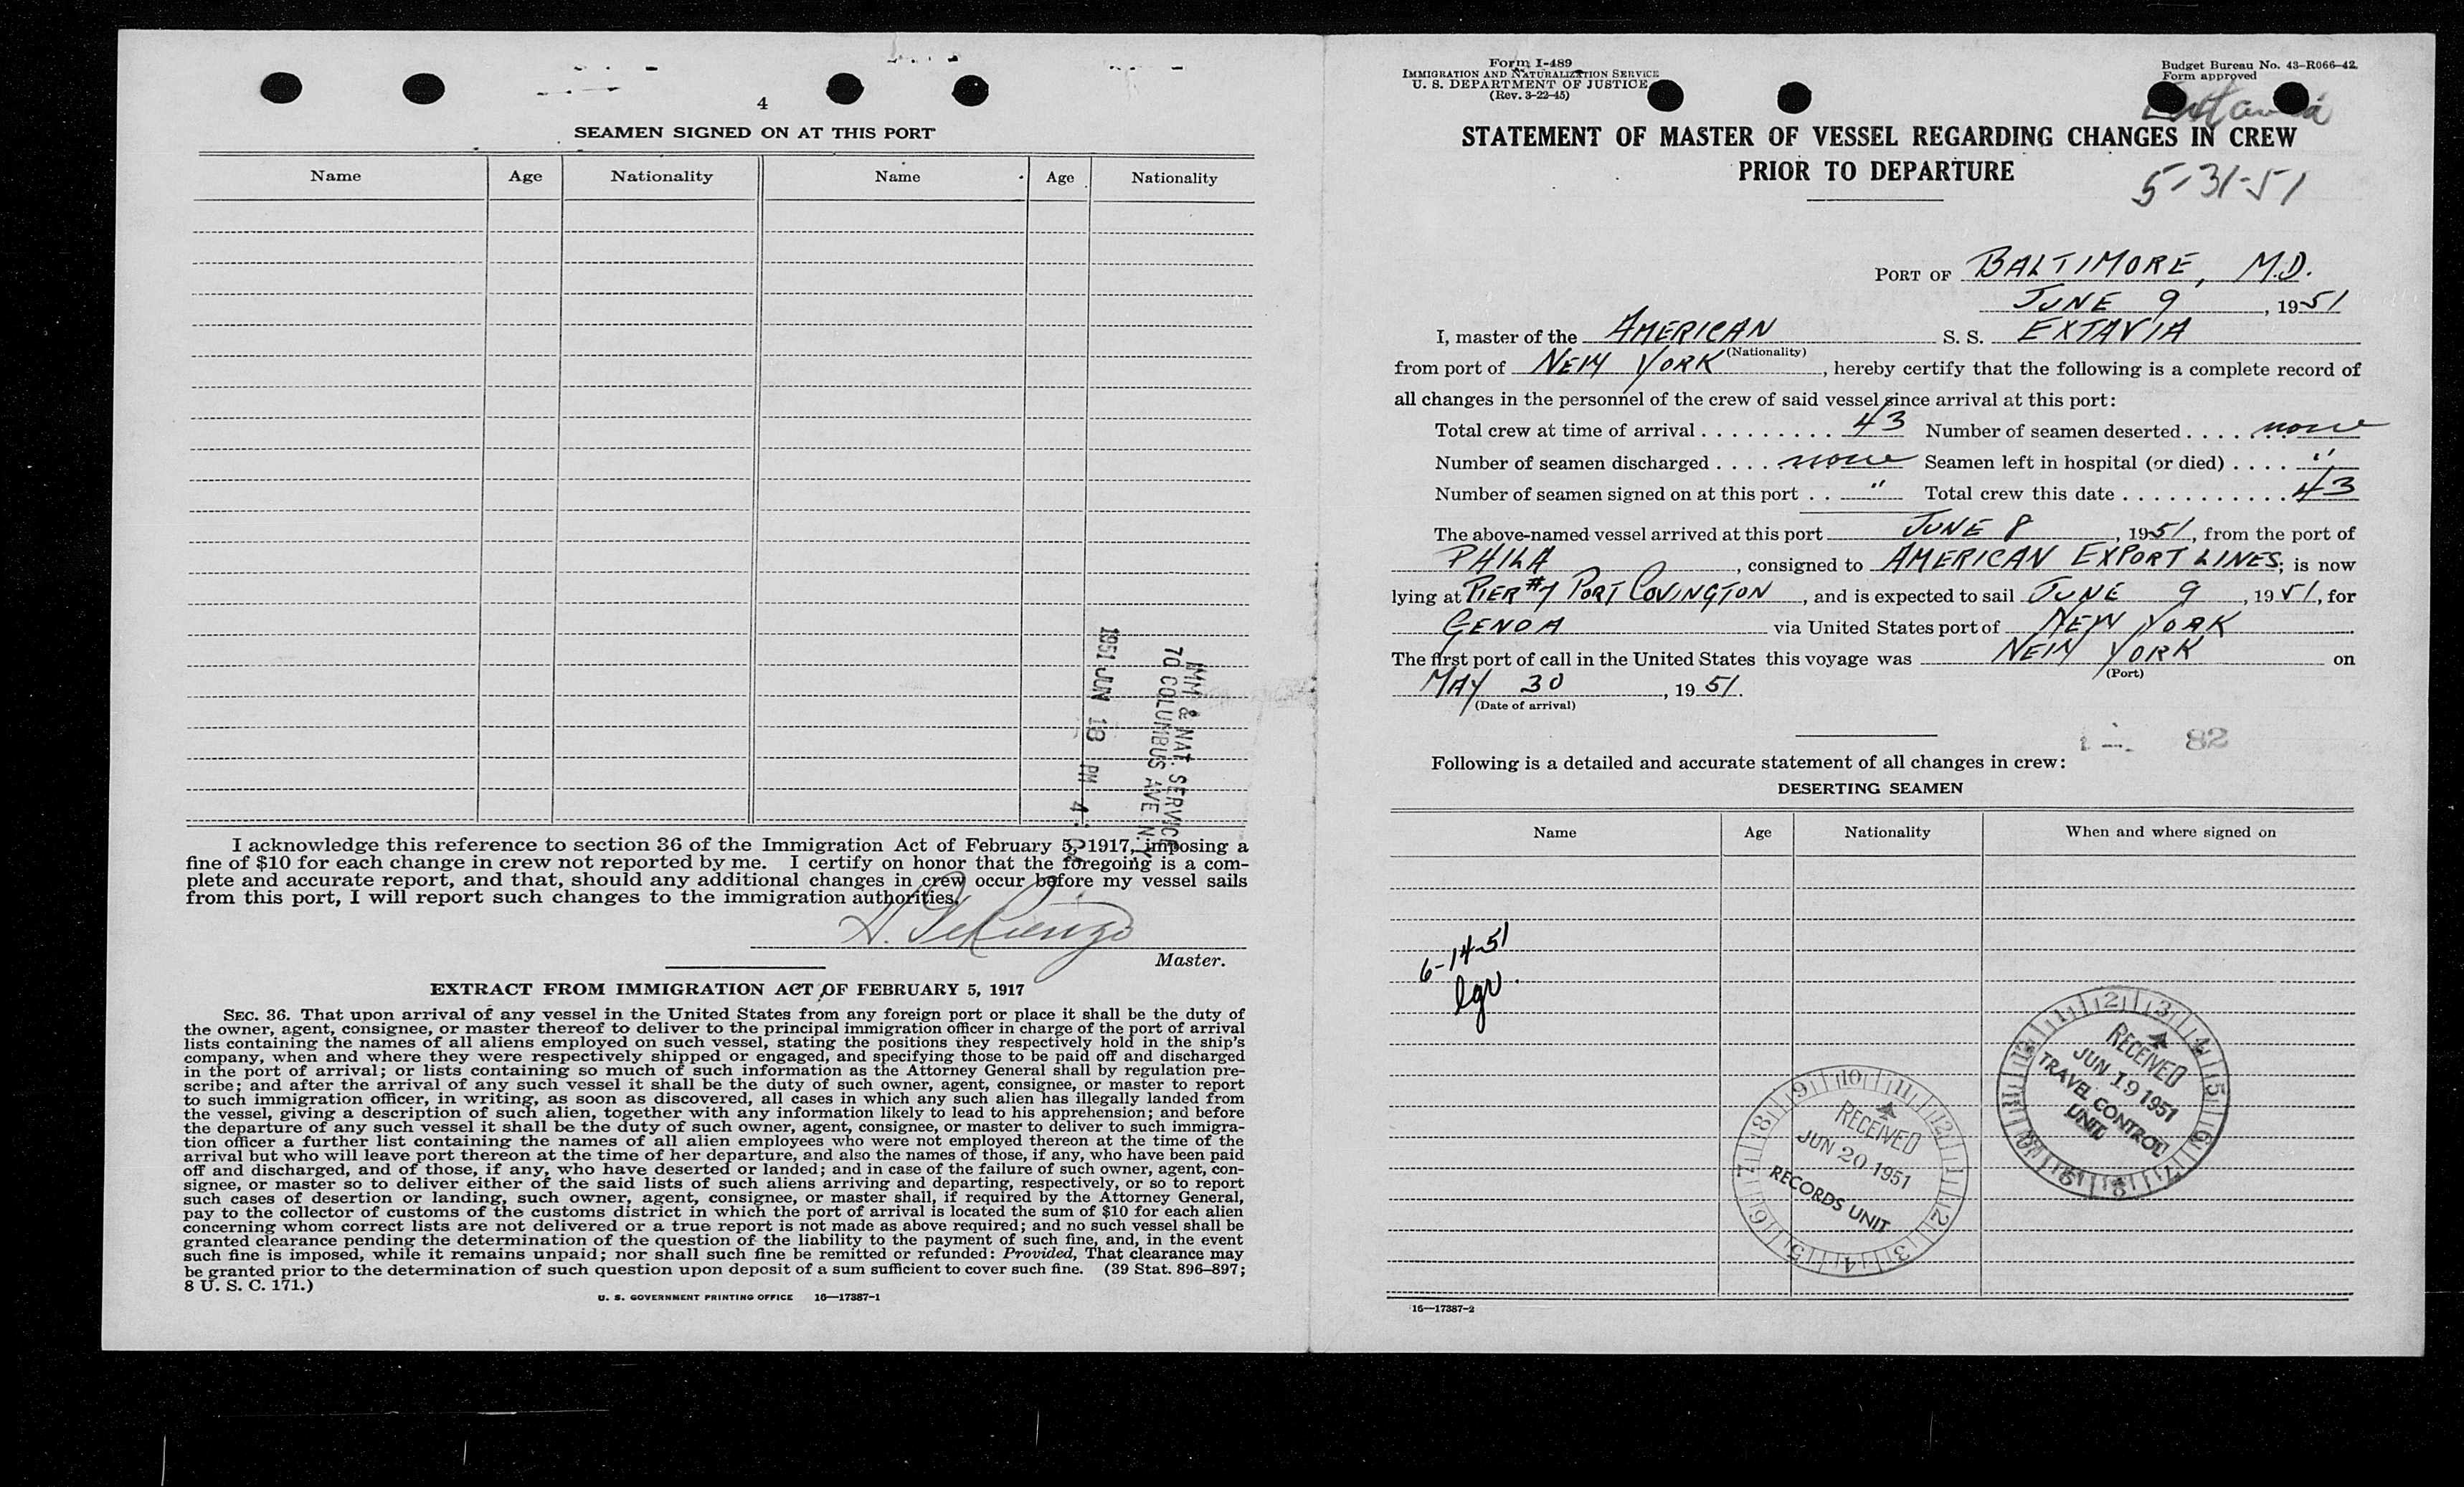 4
SEAMEN SIGNED ON AT THIS PORT
Name Age Nationality Name Age Nationality
IMM & NAT. SERVICE
70 COLUMBUS AVE N.Y.
1951 JUN 18 PM 4
I acknowledge this reference to section 36 of the Immigration Act of February 5, 1917, imposing a
fine of $10 for each change in crew not reported by me. I certify on honor that the foregoing is a com-
plete and accurate report, and that, should any additional changes in crew occur before my vessel sails
from this port, I will report such changes to the immigration authorities.
Master.
EXTRACT FROM IMMIGRATION ACT OF FEBRUARY 5, 1917
SEC. 36. That upon arrival of any vessel in the United States from any foreign port or place it shall be the duty of
the owner, agent, consignee, or master thereof to deliver to the principal immigration officer in charge of the port of arrival
lists containing the names of all aliens employed on such vessel, stating the positions they respectively hold in the ship's
company, when and where they were respectively shipped or engaged, and specifying those to be paid off and discharged
in the port of arrival; or lists containing so much of such information as the Attorney General shall by regulation pre-
scribe; and after the arrival of any such vessel it shall be the duty of such owner, agent, consignee, or master to report
to such immigration officer, in writing, as soon as discovered, all cases in which any such alien has illegally landed from
the vessel, giving a description of such alien, together with any information likely to lead to his apprehension; and before
the departure of any such vessel it shall be the duty of such owner, agent, consignee, or master to deliver to such immigra-
tion officer a further list containing the names of all alien employees who were not employed thereon at the time of the
arrival but who will leave port thereon at the time of her departure, and also the names of those, if any, who have been paid
off and discharged, and of those, if any, who have deserted or landed; and in case of the failure of such owner, agent, con-
signee, or master so to deliver either of the said lists of such aliens arriving and departing, respectively, or so to report
such cases of desertion or landing, such owner, agent, consignee, or master shall, if required by the Attorney General,
pay to the collector of customs of the customs district in which the port of arrival is located the sum of $10 for each alien
concerning whom correct lists are not delivered or a true report is not made as above required; and no such vessel shall be
granted clearance pending the determination of the question of the liability to the payment of such fine, and, in the event
such fine is imposed, while it remains unpaid; nor shall such fine be remitted or refunded: Provided, That clearance may
be granted prior to the determination of such question upon deposit of a sum sufficient to cover such fine. (39 Stat. 896–897;
8 U. S. C. 171.)
U. S. GOVERNMENT PRINTING OFFICE 16—17387-1
Form I-489
IMMIGRATION AND NATURALIZATION SERVICE
U. S. DEPARTMENT OF JUSTICE
(Rev. 3-22-45)
Budget Bureau No. 43-R066-42.
Form approved
STATEMENT OF MASTER OF VESSEL REGARDING CHANGES IN CREW
PRIOR TO DEPARTURE
5-31-51
PORT OF BALTIMORE, M.D.
JUNE 9, 1951
I, master of the AMERICAN S. S. EXTAVIA
(Nationality)
from port of NEW YORK, hereby certify that the following is a complete record of
all changes in the personnel of the crew of said vessel since arrival at this port:
Total crew at time of arrival ......... 43 Number of seamen deserted .... none
Number of seamen discharged .... none Seamen left in hospital (or died) .... "
Number of seamen signed on at this port .. " Total crew this date ........... 43
The above-named vessel arrived at this port JUNE 8, 1951, from the port of
PHILA, consigned to AMERICAN EXPORT LINES; is now
lying at PIER #7 PORT COVINGTON, and is expected to sail JUNE 9, 1951, for
GENOA via United States port of NEW YORK
The first port of call in the United States this voyage was NEW YORK on
(Port)
MAY 30, 1951.
(Date of arrival)
82
Following is a detailed and accurate statement of all changes in crew:
DESERTING SEAMEN
Name Age Nationality When and where signed on
6-14-51
lgv.
RECEIVED
JUN 19 1951
TRAVEL CONTROL
UNIT
RECEIVED
JUN 20 1951
RECORDS UNIT
16—17387-2